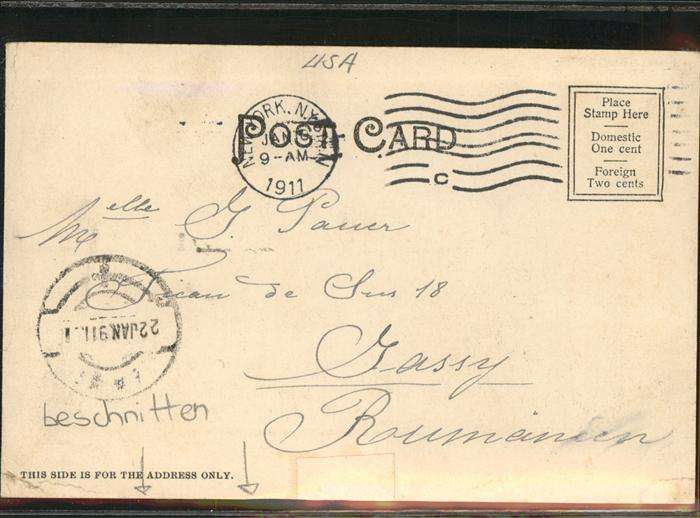 USA
NEW YORK, N.Y.
JAN
9-AM
1911
POST CARD
C
Place
Stamp Here
Domestic
One cent
Foreign
Two cents
Melle G. Pauer
de Sus 18
Jassy
Rumänien
22JAN911
beschnitten
THIS SIDE IS FOR THE ADDRESS ONLY.